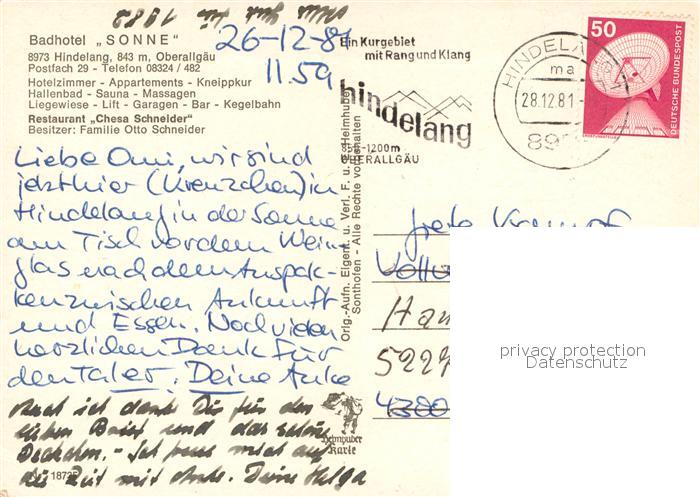 Alles Gute für 1982
Badhotel „SONNE"
8973 Hindelang, 843 m, Oberallgäu
Postfach 29 - Telefon 08324 / 482
Hotelzimmer - Appartements - Kneippkur
Hallenbad - Sauna - Massagen
Liegewiese - Lift - Garagen - Bar - Kegelbahn
Restaurant "Chesa Schneider"
Besitzer: Familie Otto Schneider
26-12-81
11.59
Liebe Omi, wir sind
jetzt hier (Kreuzchen) in
Hindelang in der Sonne
am Tisch vor dem Wein-
glas nach dem Auspak-
ken zwischen Ankunft
und Essen. Noch vielen
herzlichen Dank für
den Taler. Deine Anke
Auch ich danke Dir für den
lieben Brief und das schöne
Deckchen. - Ich freue mich auf
die Zeit mit Anke. Deine Helga
18735
Orig.-Aufn. Eigent. u. Verl. F. u. Heimhuber
Sonthofen - Alle Rechte vorbehalten
Heimhuber
Karte
Ein Kurgebiet
mit Rang und Klang
hindelang
850-1200m
OBERALLGÄU
HINDELANG
ma
28.12.81-
50
DEUTSCHE BUNDESPOST
Ham
5227
4300
privacy protection
Datenschutz